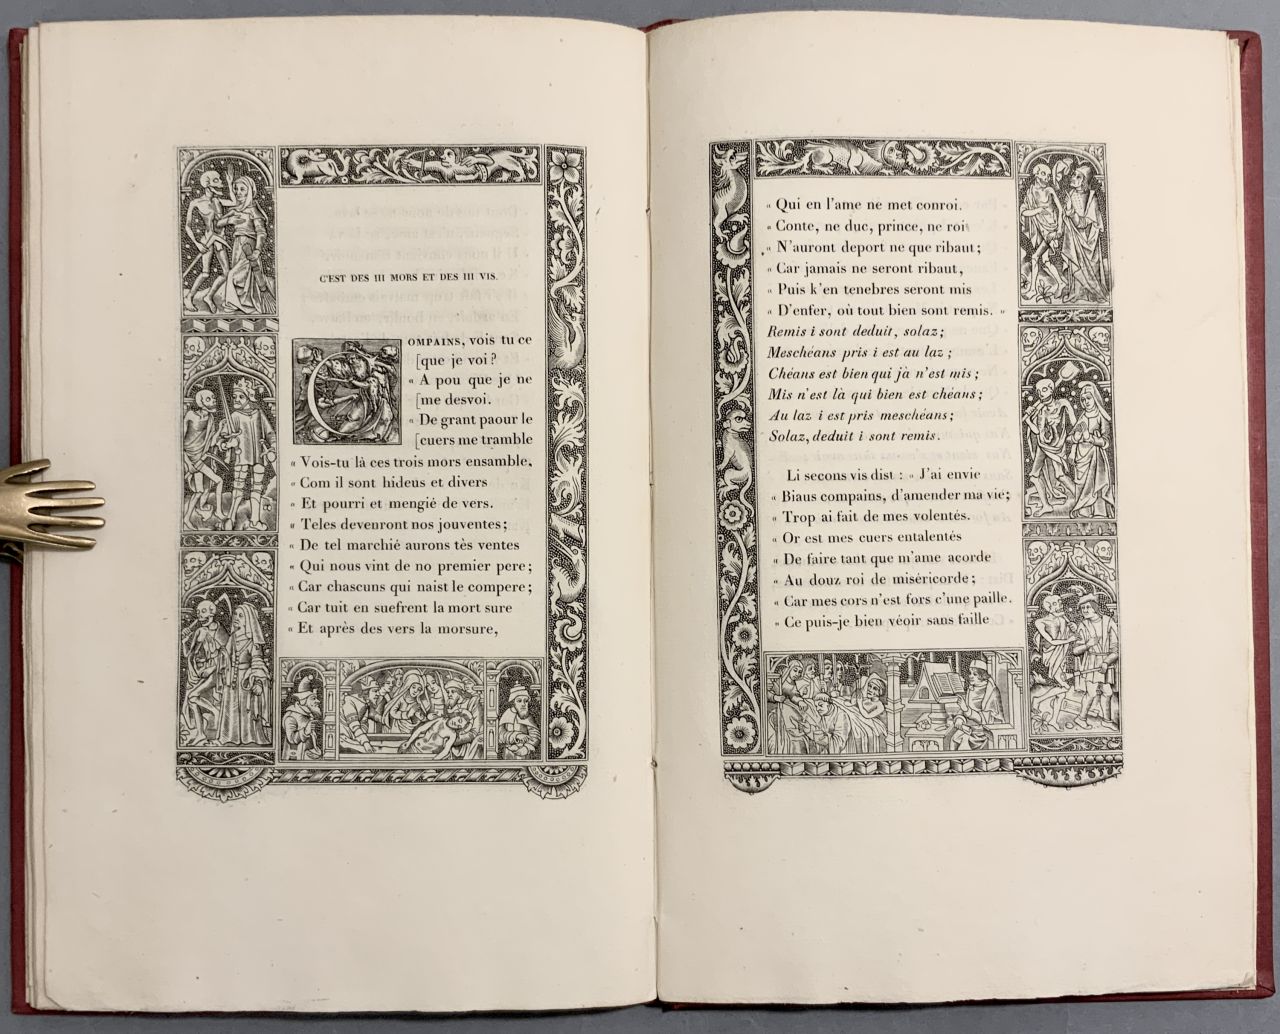 C'EST DES III MORS ET DES III VIS.
COMPAINS, vois tu ce
[que je voi?
« A pou que je ne
[me desvoi.
« De grant paour le
[cuers me tramble
« Vois-tu là ces trois mors ensamble,
« Com il sont hideus et divers
« Et pourri et mengié de vers.
« Teles devenront nos jouventes;
« De tel marchié aurons tès ventes
« Qui nous vint de no premier pere;
« Car chascuns qui naist le compere;
« Car tuit en suefrent la mort sure
« Et après des vers la morsure,
« Qui en l'ame ne met conroi.
« Conte, ne duc, prince, ne roi
« N'auront deport ne que ribaut;
« Car jamais ne seront ribaut,
« Puis k'en tenebres seront mis
« D'enfer, où tout bien sont remis. »
Remis i sont deduit, solaz;
Meschéans pris i est au laz;
Chéans est bien qui jà n'est mis;
Mis n'est là qui bien est chéans;
Au laz i est pris meschéans;
Solaz, deduit i sont remis.
Li secons vis dist : « J'ai envie
« Biaus compains, d'amender ma vie;
« Trop ai fait de mes volentés.
« Or est mes cuers entalentés
« De faire tant que m'ame acorde
« Au douz roi de miséricorde;
« Car mes cors n'est fors c'une paille.
« Ce puis-je bien véoir sans faille